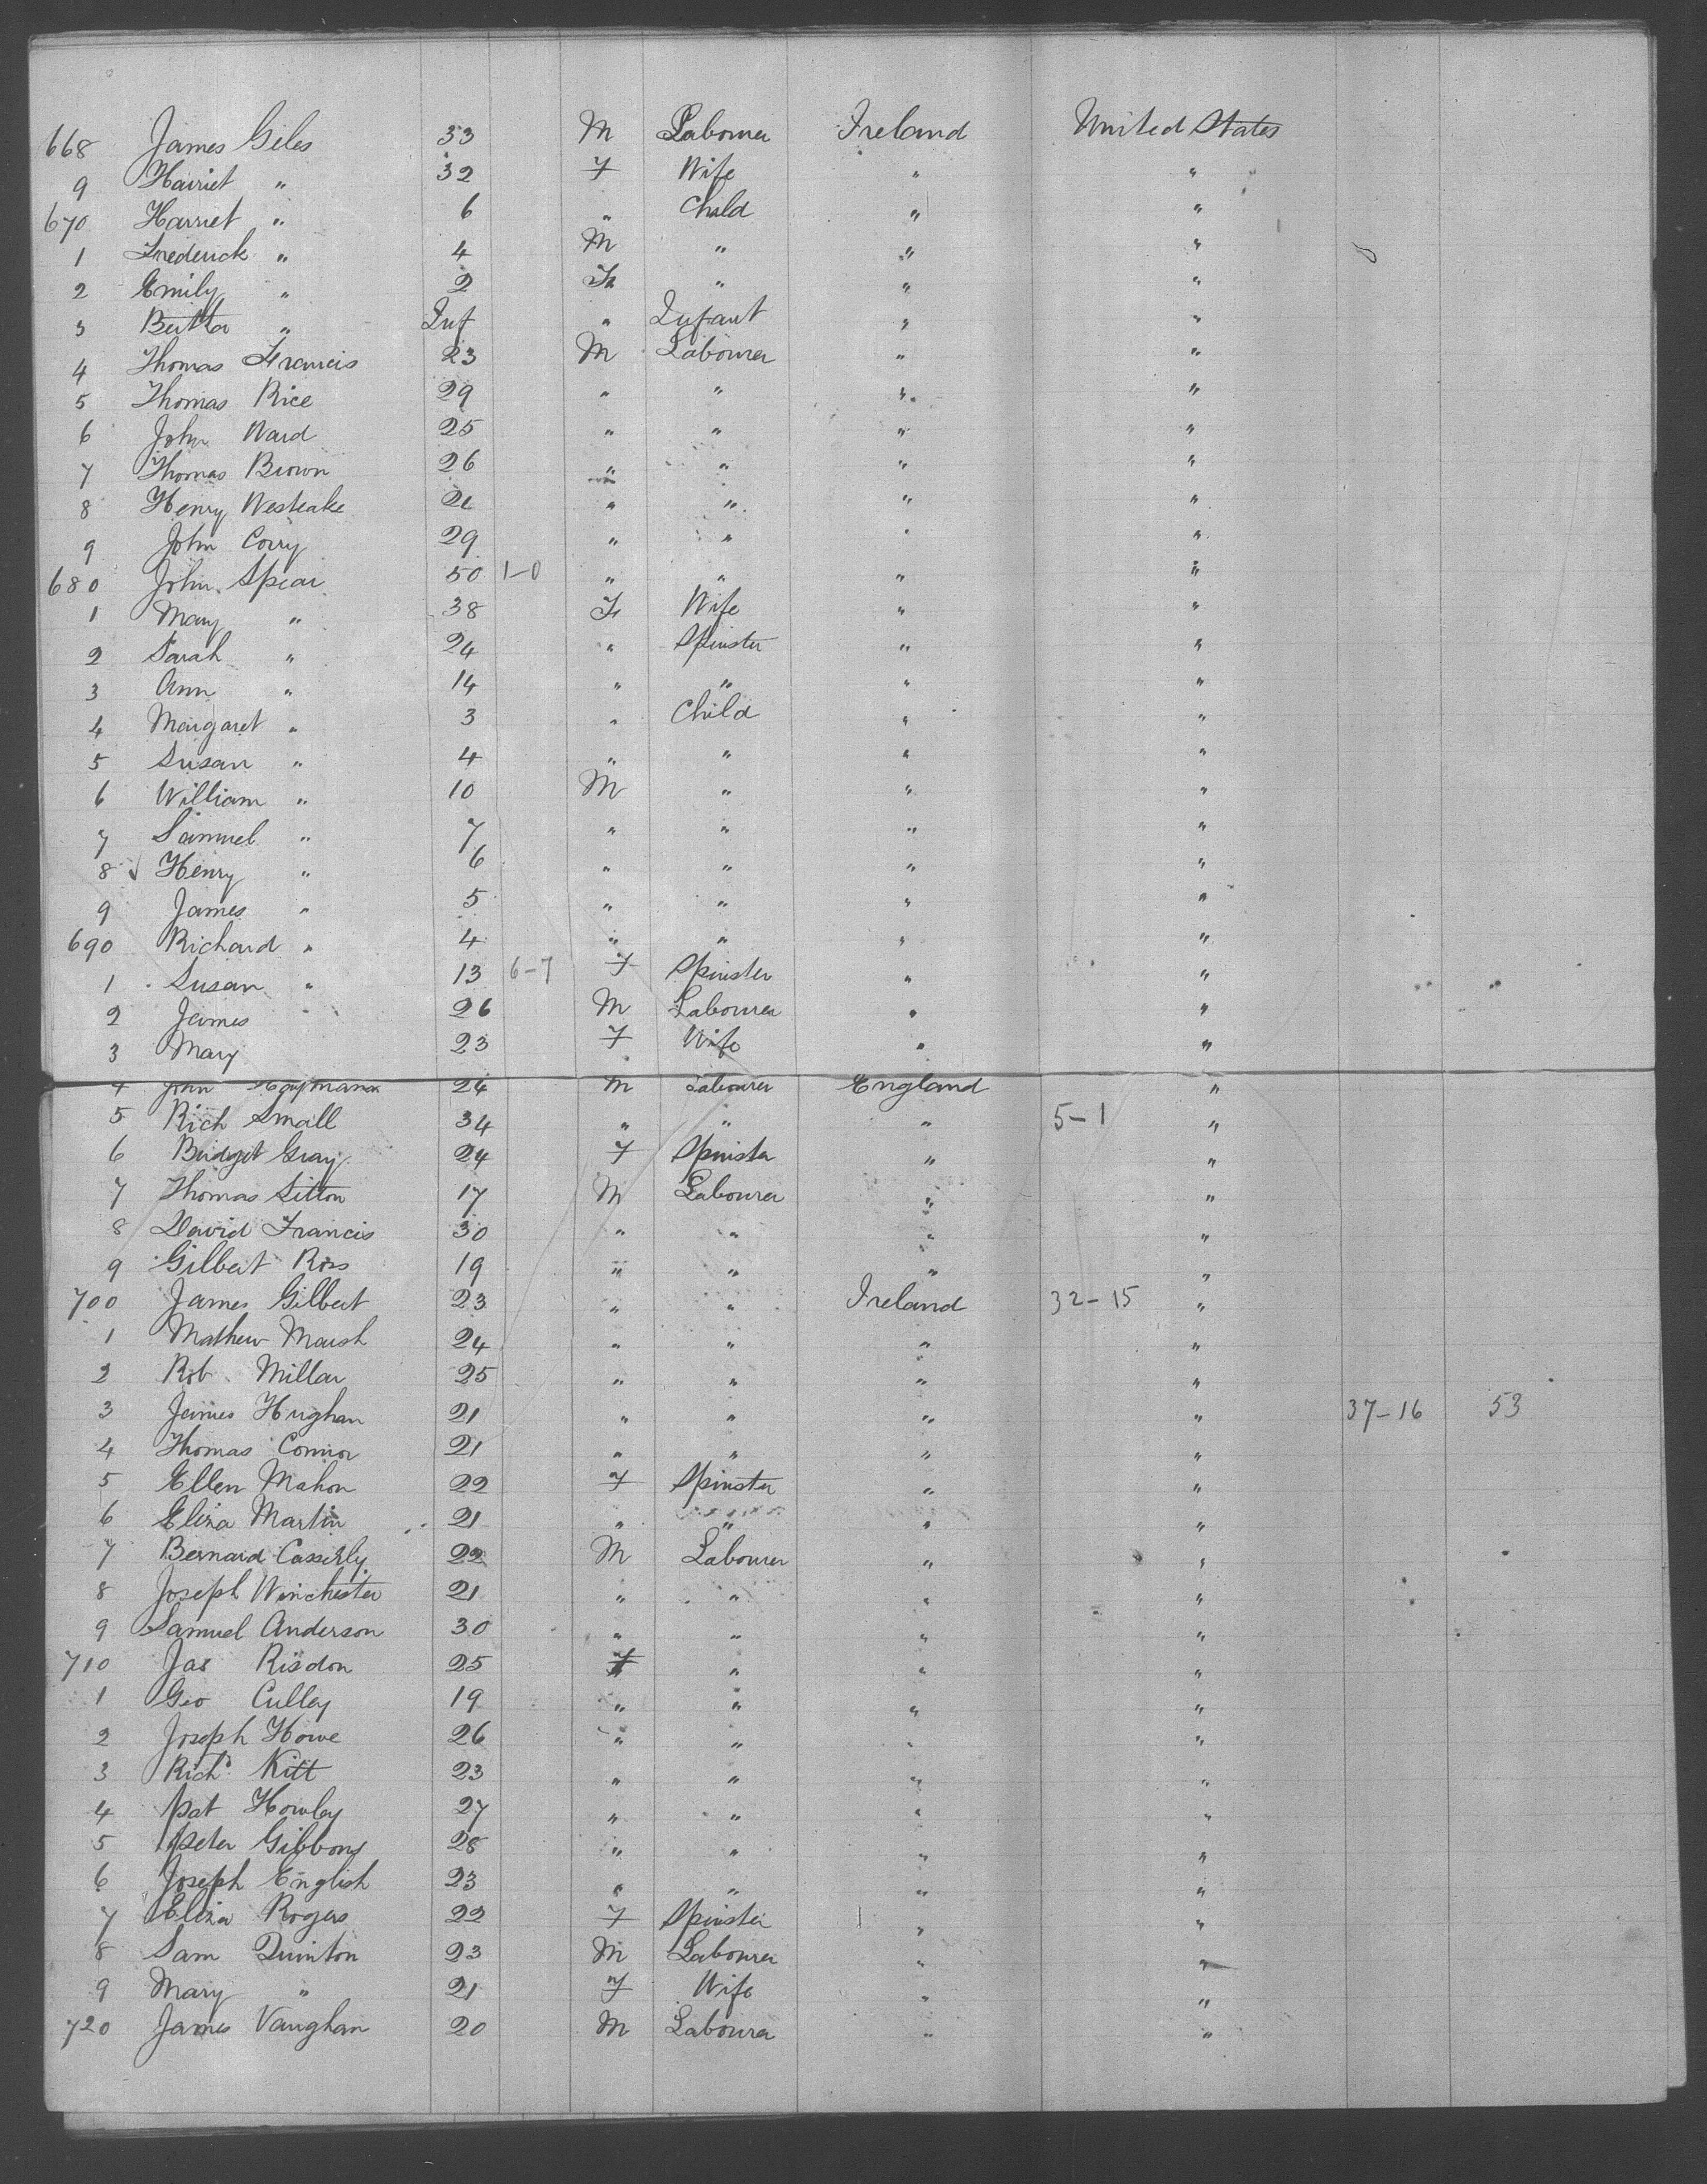 668 James Giles 33 M Labourer Ireland United States
9 Harriet " 32 F Wife " "
670 Harriet " 6 " Child " "
1 Frederick " 4 M " " "
2 Emily " 2 F " " "
3 " Inf " Infant " "
4 Thomas Francis 23 M Labourer " "
5 Thomas Rice 29 " " " "
6 John Ward 25 " " " "
7 Thomas Brown 26 " " " "
8 Henry Westlake " " " "
9 John Corry 29 " " " "
680 John Spear 50 1-0 " " " "
1 Mary " 38 F Wife " "
2 Sarah " 24 " Spinster " "
3 Ann " 14 " " " "
4 Margaret " 3 " Child " "
5 Susan " 4 " " " "
6 William " 10 M " " "
7 Samuel " 7 " " " "
8 Henry " 6 " " " "
9 James " 5 " " " "
690 Richard " 4 " " " "
1 Susan " 13 6-7 F Spinster " "
2 James " 26 M Labourer " "
3 Mary 23 F Wife " "
4 John 24 M Labourer England "
5 Rich Small 34 " " " 5-1 "
6 Bridget Gray 24 F Spinster " "
7 Thomas Sitton 17 M Labourer " "
8 David Francis 30 " " " "
9 Gilbert Ross 19 " " " "
700 James Gilbert 23 " " Ireland 32-15 "
1 Mathew Marsh 24 " " " "
2 Rob Millar 25 " " " "
3 James Hughan 21 " " " " 37-16 53
4 Thomas Connor 21 " " " "
5 Ellen Mahon 22 F Spinster " "
6 Eliza Martin 21 " " " "
7 Bernard Casserly 22 M Labourer " "
8 Joseph Winchester 21 " " " "
9 Samuel Anderson 30 " " " "
710 Jas Risdon 25 " " "
1 Geo Culley 19 " " " "
2 Joseph Howe 26 " " " "
3 Richd Kitt 23 " " " "
4 Pat Howley 27 " " " "
5 Peter Gibbons 28 " " " "
6 Joseph English 23 " " " "
7 Eliza Rogers 22 F Spinster " "
8 Sam Quinton 23 M Labourer " "
9 Mary " 21 F Wife " "
720 James Vaughan 20 M Labourer " "